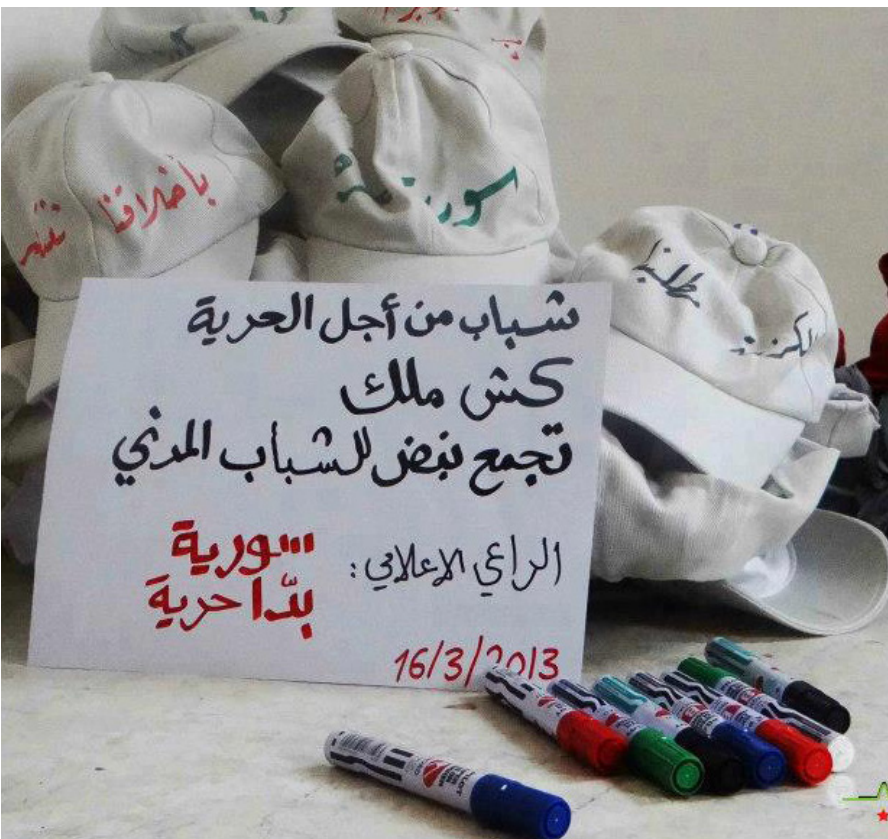 بأخلاقنا
سورية
مطلبنا
شباب من أجل الحرية
كش ملك
تجمع نبض للشباب المدني
الراعي الإعلامي:
سورية
بدّا حرية
16/3/2013